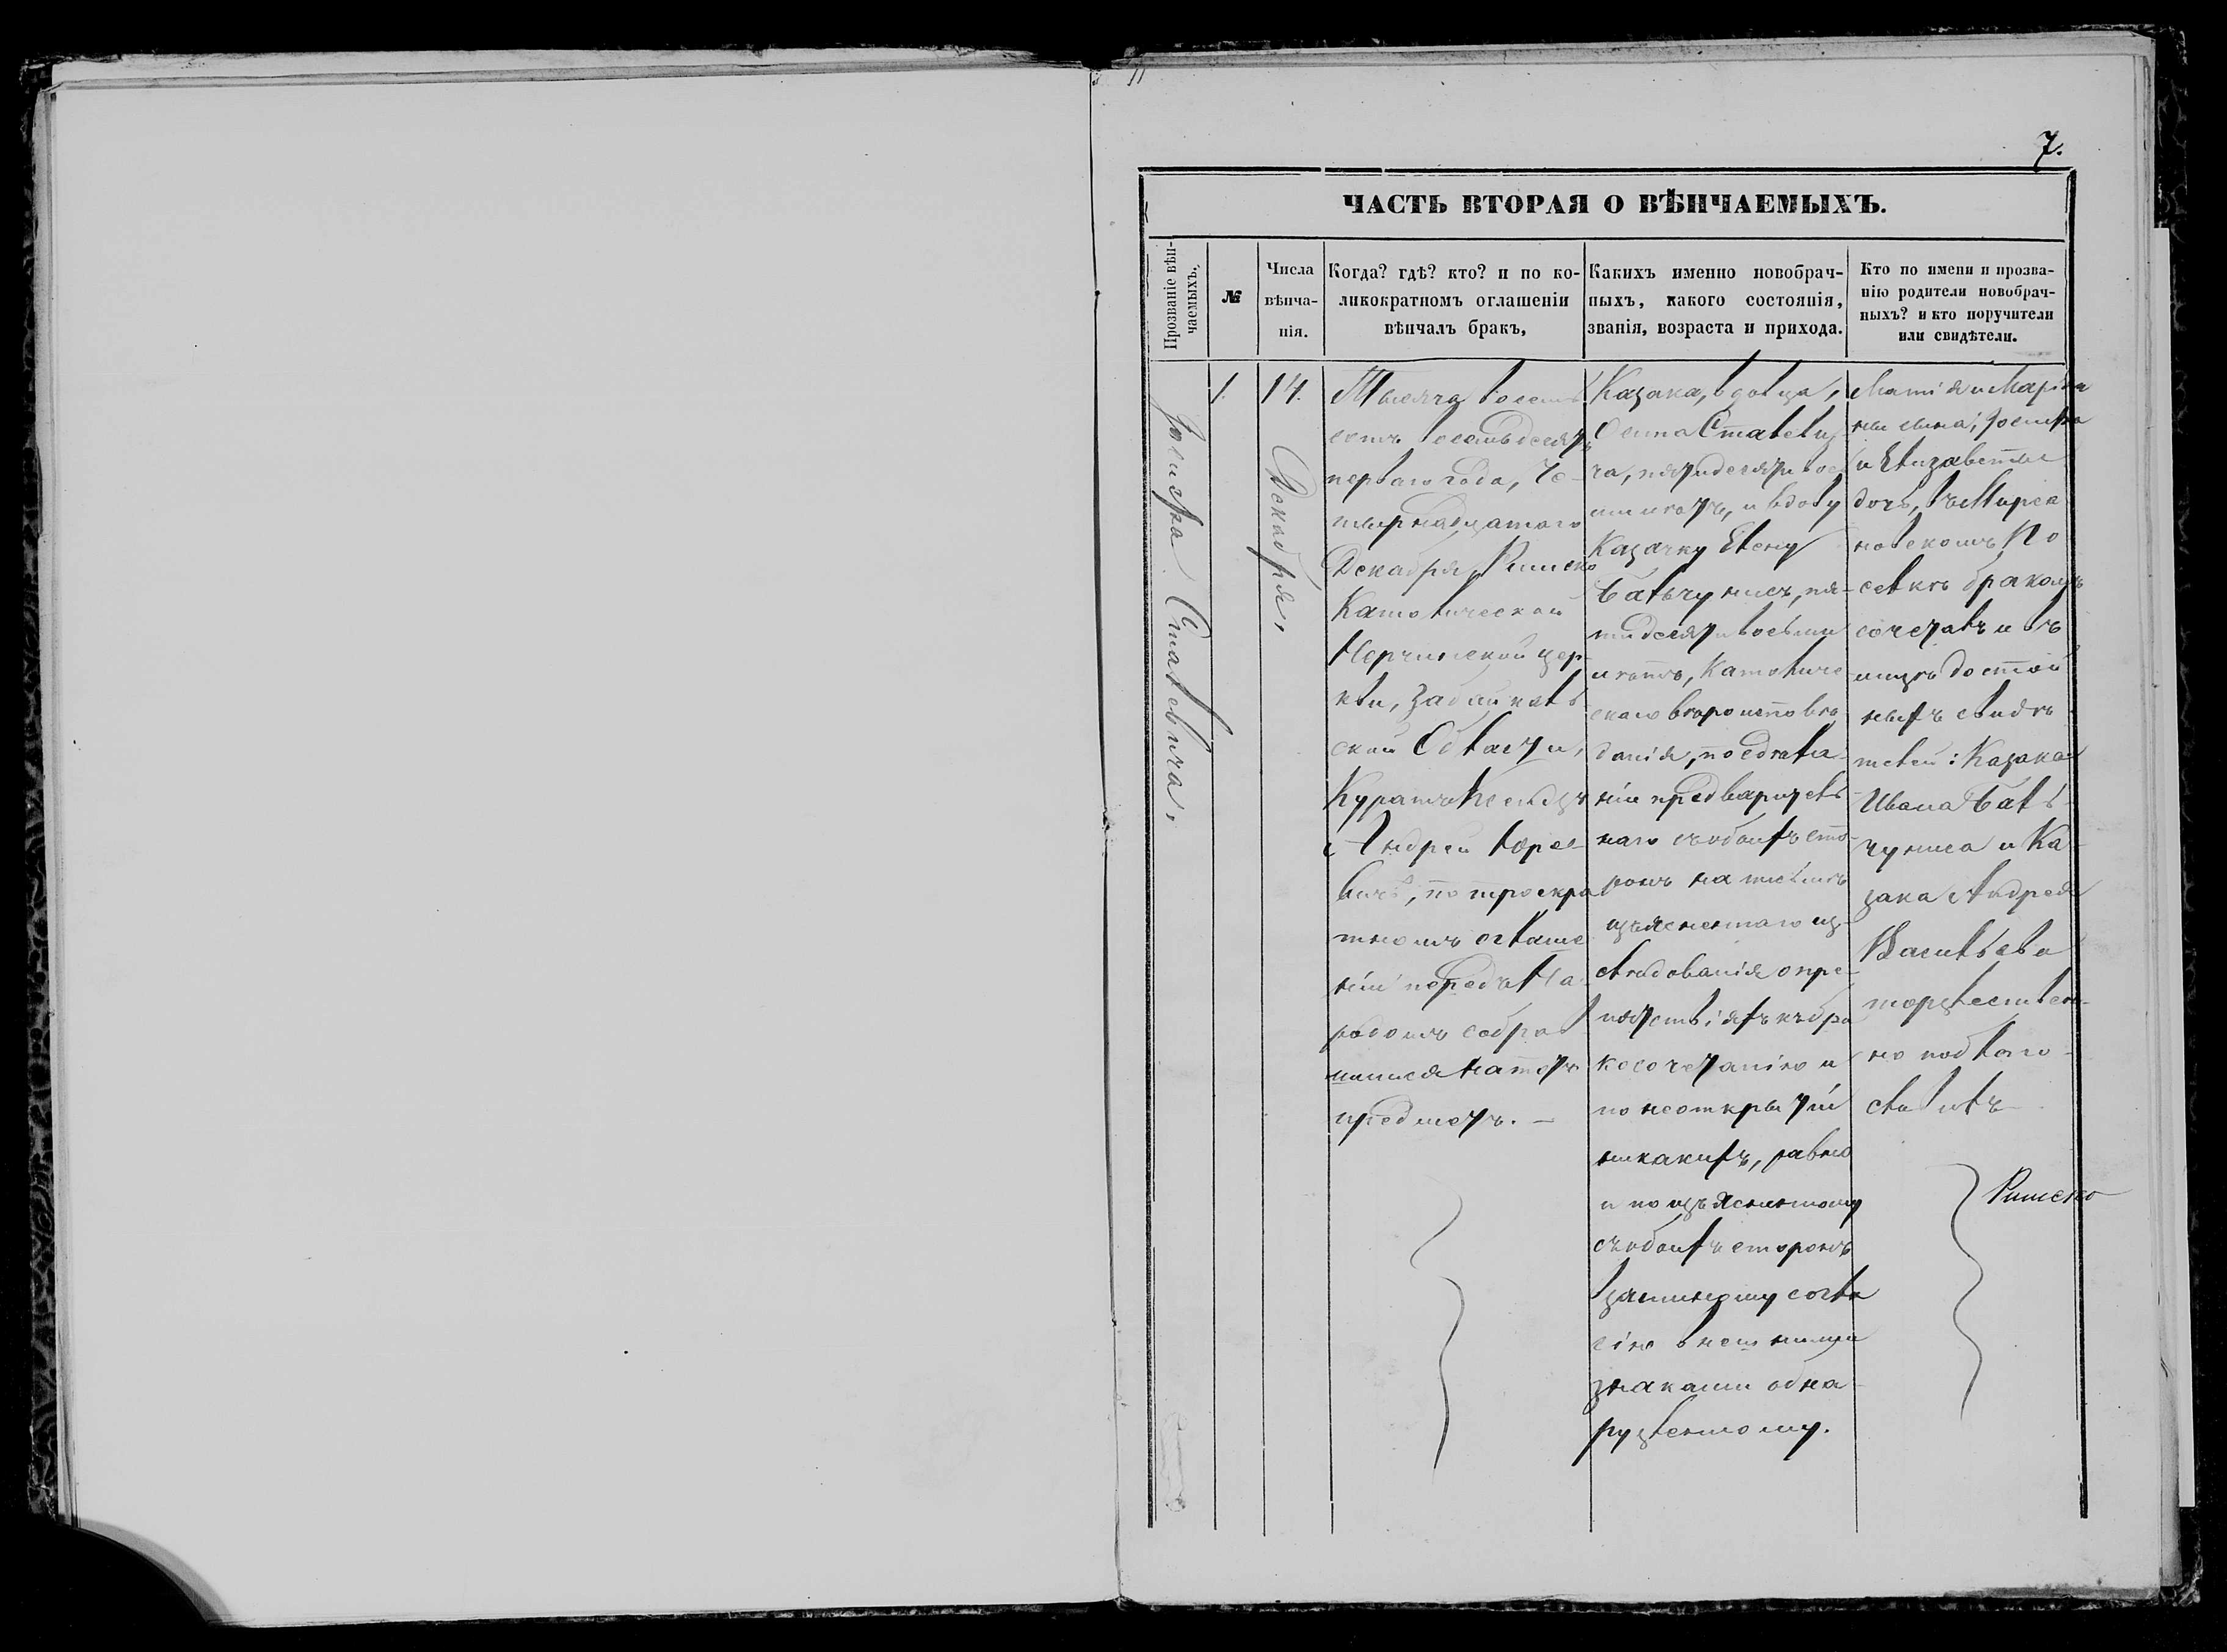 7.
ЧАСТЬ ВТОРАЯ О ВѢНЧАЕМЫХЪ.
Прозваніе вѣн-
чаемыхъ.
№
Числа
вѣнча-
нія.
Когда? гдѣ? кто? и по ко-
ликократномъ оглашеніи
вѣнчалъ бракъ,
Какихъ именно новобрач-
ныхъ, какого состоянія,
званія, возраста и прихода.
Кто по имени и прозва-
нію родители новобрач-
ныхъ? и кто поручители
или свидѣтели.
Іосифа Сталевича,
1.
14.
Декабря,
Тысяча восемь
сотъ восемьдесятъ
перваго года, Че-
тырнадцатаго
Декабря, Римско
Католической
Нерчинской цер-
кви, Забайкаль
ской Области,
Куратъ Ксендзъ
Андрей
по троекра
тномъ оглаше
ніи передъ На
родомъ собрав
шимся на тотъ
предметъ. —
Казака, вдовца,
Осипа Сталеви
ча, пятидесяти вось
ми лѣтъ, и вдову
Казачку Елену
Бальчунисъ, пя-
тидесяти восьми
лѣтъ, Католиче
скаго вѣроисповѣ
данія, по сдѣла
ніи предваритель
наго съ обоихъ сто-
ронъ на письмѣ
изъясненнаго из-
слѣдованія о пре-
пятствіяхъ къ бра
косочетанію и
по неоткрытіи
никакихъ, равно
и по изъясненному
съ обоихъ сторонъ
взаимному согла
сію внешними
знаками обна-
руженному.
Матія и Маріян
ны сына; Іосифа
и Елизаветы
дочь, въ
новскомъ По
селкѣ бракомъ
сочеталъ и въ
лицѣ достой
ныхъ свидѣ
телей: Казака
Ивана Баль-
чуниса и Ка-
зака Андрея
Васильева
торжествен-
но поблаго-
словилъ
Римско